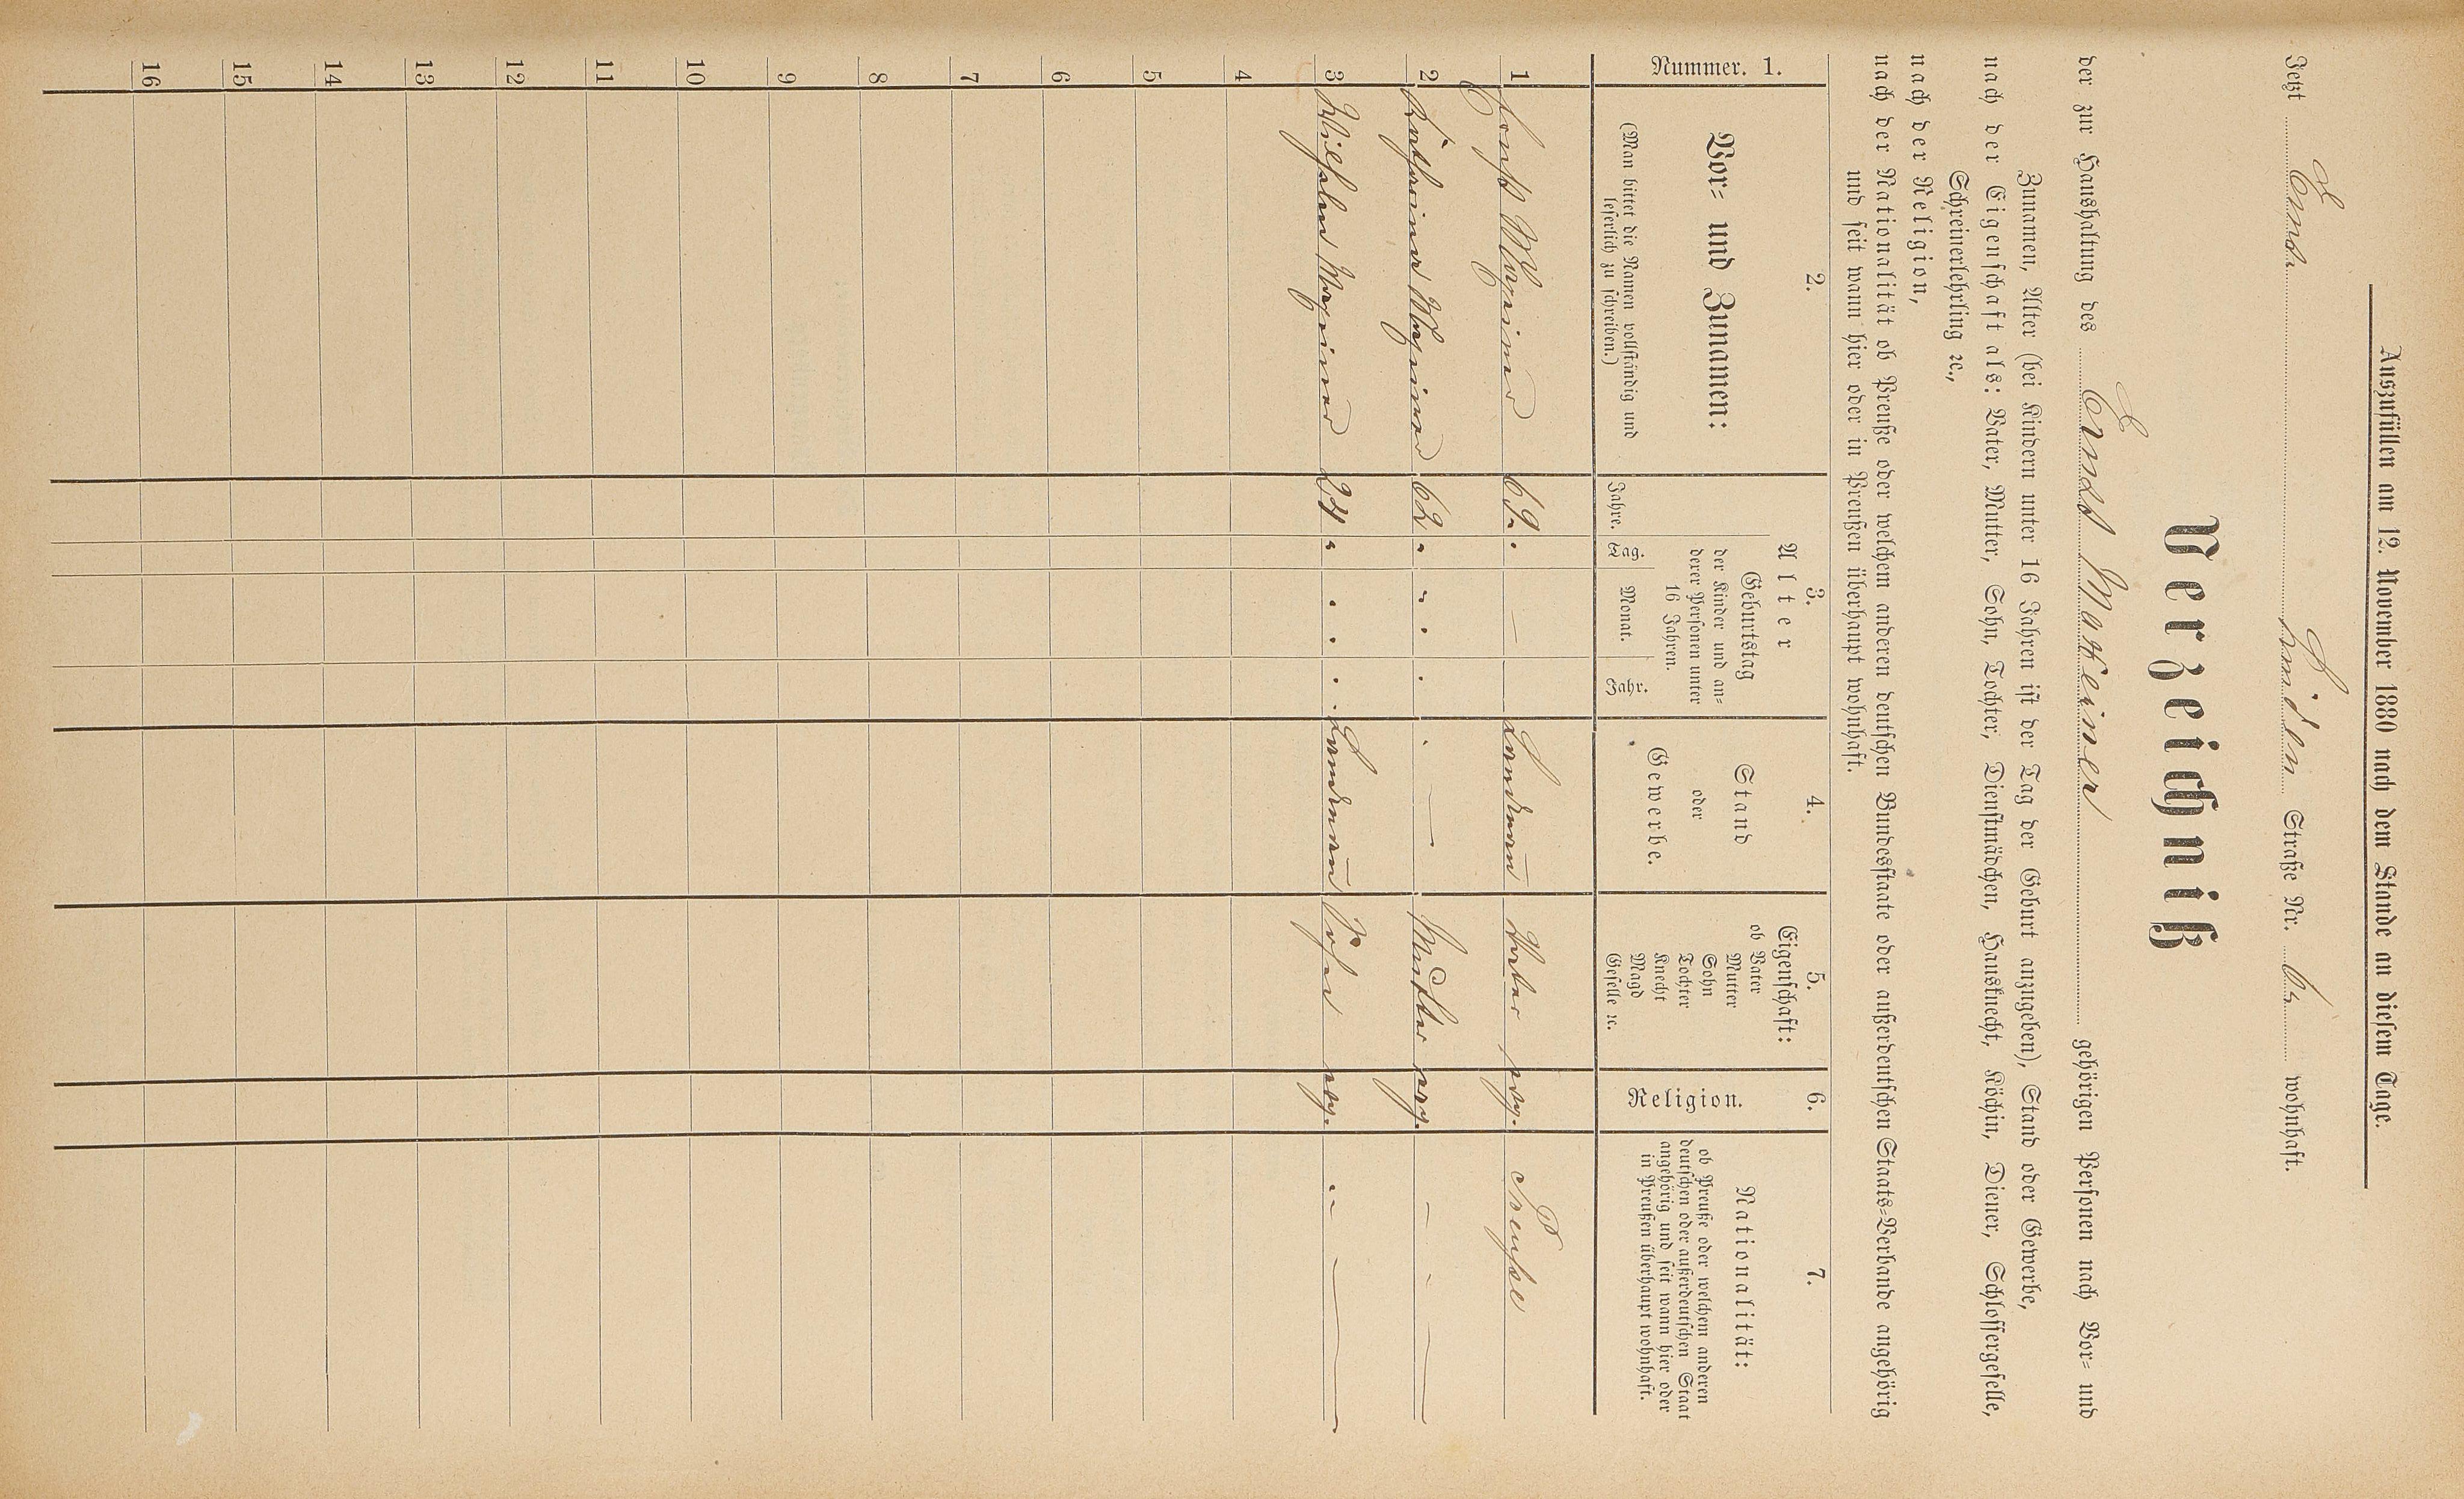 Auszufüllen am 12. November 1880 nach dem Stande an diesem Tage.
Jetzt Ems. Linden Straße Nr. wohnhaft.
Verzeichniß
der zur Haushaltung des Ernst Maxeiner gehörigen Personen nach Vor- und
Zunamen, Alter (bei Kindern unter 16 Jahren ist der Tag der Geburt anzugeben), Stand oder Gewerbe,
nach der Eigenschaft als: Vater, Mutter, Sohn, Tochter, Dienstmädchen, Hausknecht, Köchin, Diener, Schlossergeselle,
Schreinerlehrling ꝛc.,
nach der Religion,
nach der Nationalität ob Preuße oder welchem anderen deutschen Bundesstaate oder außerdeutschen Staats-Verbande angehörig
und seit wann hier oder in Preußen überhaupt wohnhaft.
Nummer. 1.
2.
Vor- und Zunamen:
(Man bittet die Namen vollständig und
leserlich zu schreiben.)
3.
Alter
Jahre.
Geburtstag
der Kinder und an-
derer Personen unter
16 Jahren.
Tag. Monat. Jahr.
4.
Stand
oder
Gewerbe.
5.
Eigenschaft:
ob Vater
Mutter
Sohn
Tochter
Knecht
Magd
Geselle ꝛc.
6.
Religion.
7.
Nationalität:
ob Preuße oder welchem anderen
deutschen oder außerdeutschen Staat
angehörig und seit wann hier oder
in Preußen überhaupt wohnhaft.
1 Ernst Maxeiner 69. Landman̄ Vater evg. Preuße
2 Kathrine Maxeiner 62 " " — Mutter evg. " " —
3 Wilhelm Maxeiner 24 " Landman̄ Sohn evg. " " —
4
5
6
7
8
9
10
11
12
13
14
15
16